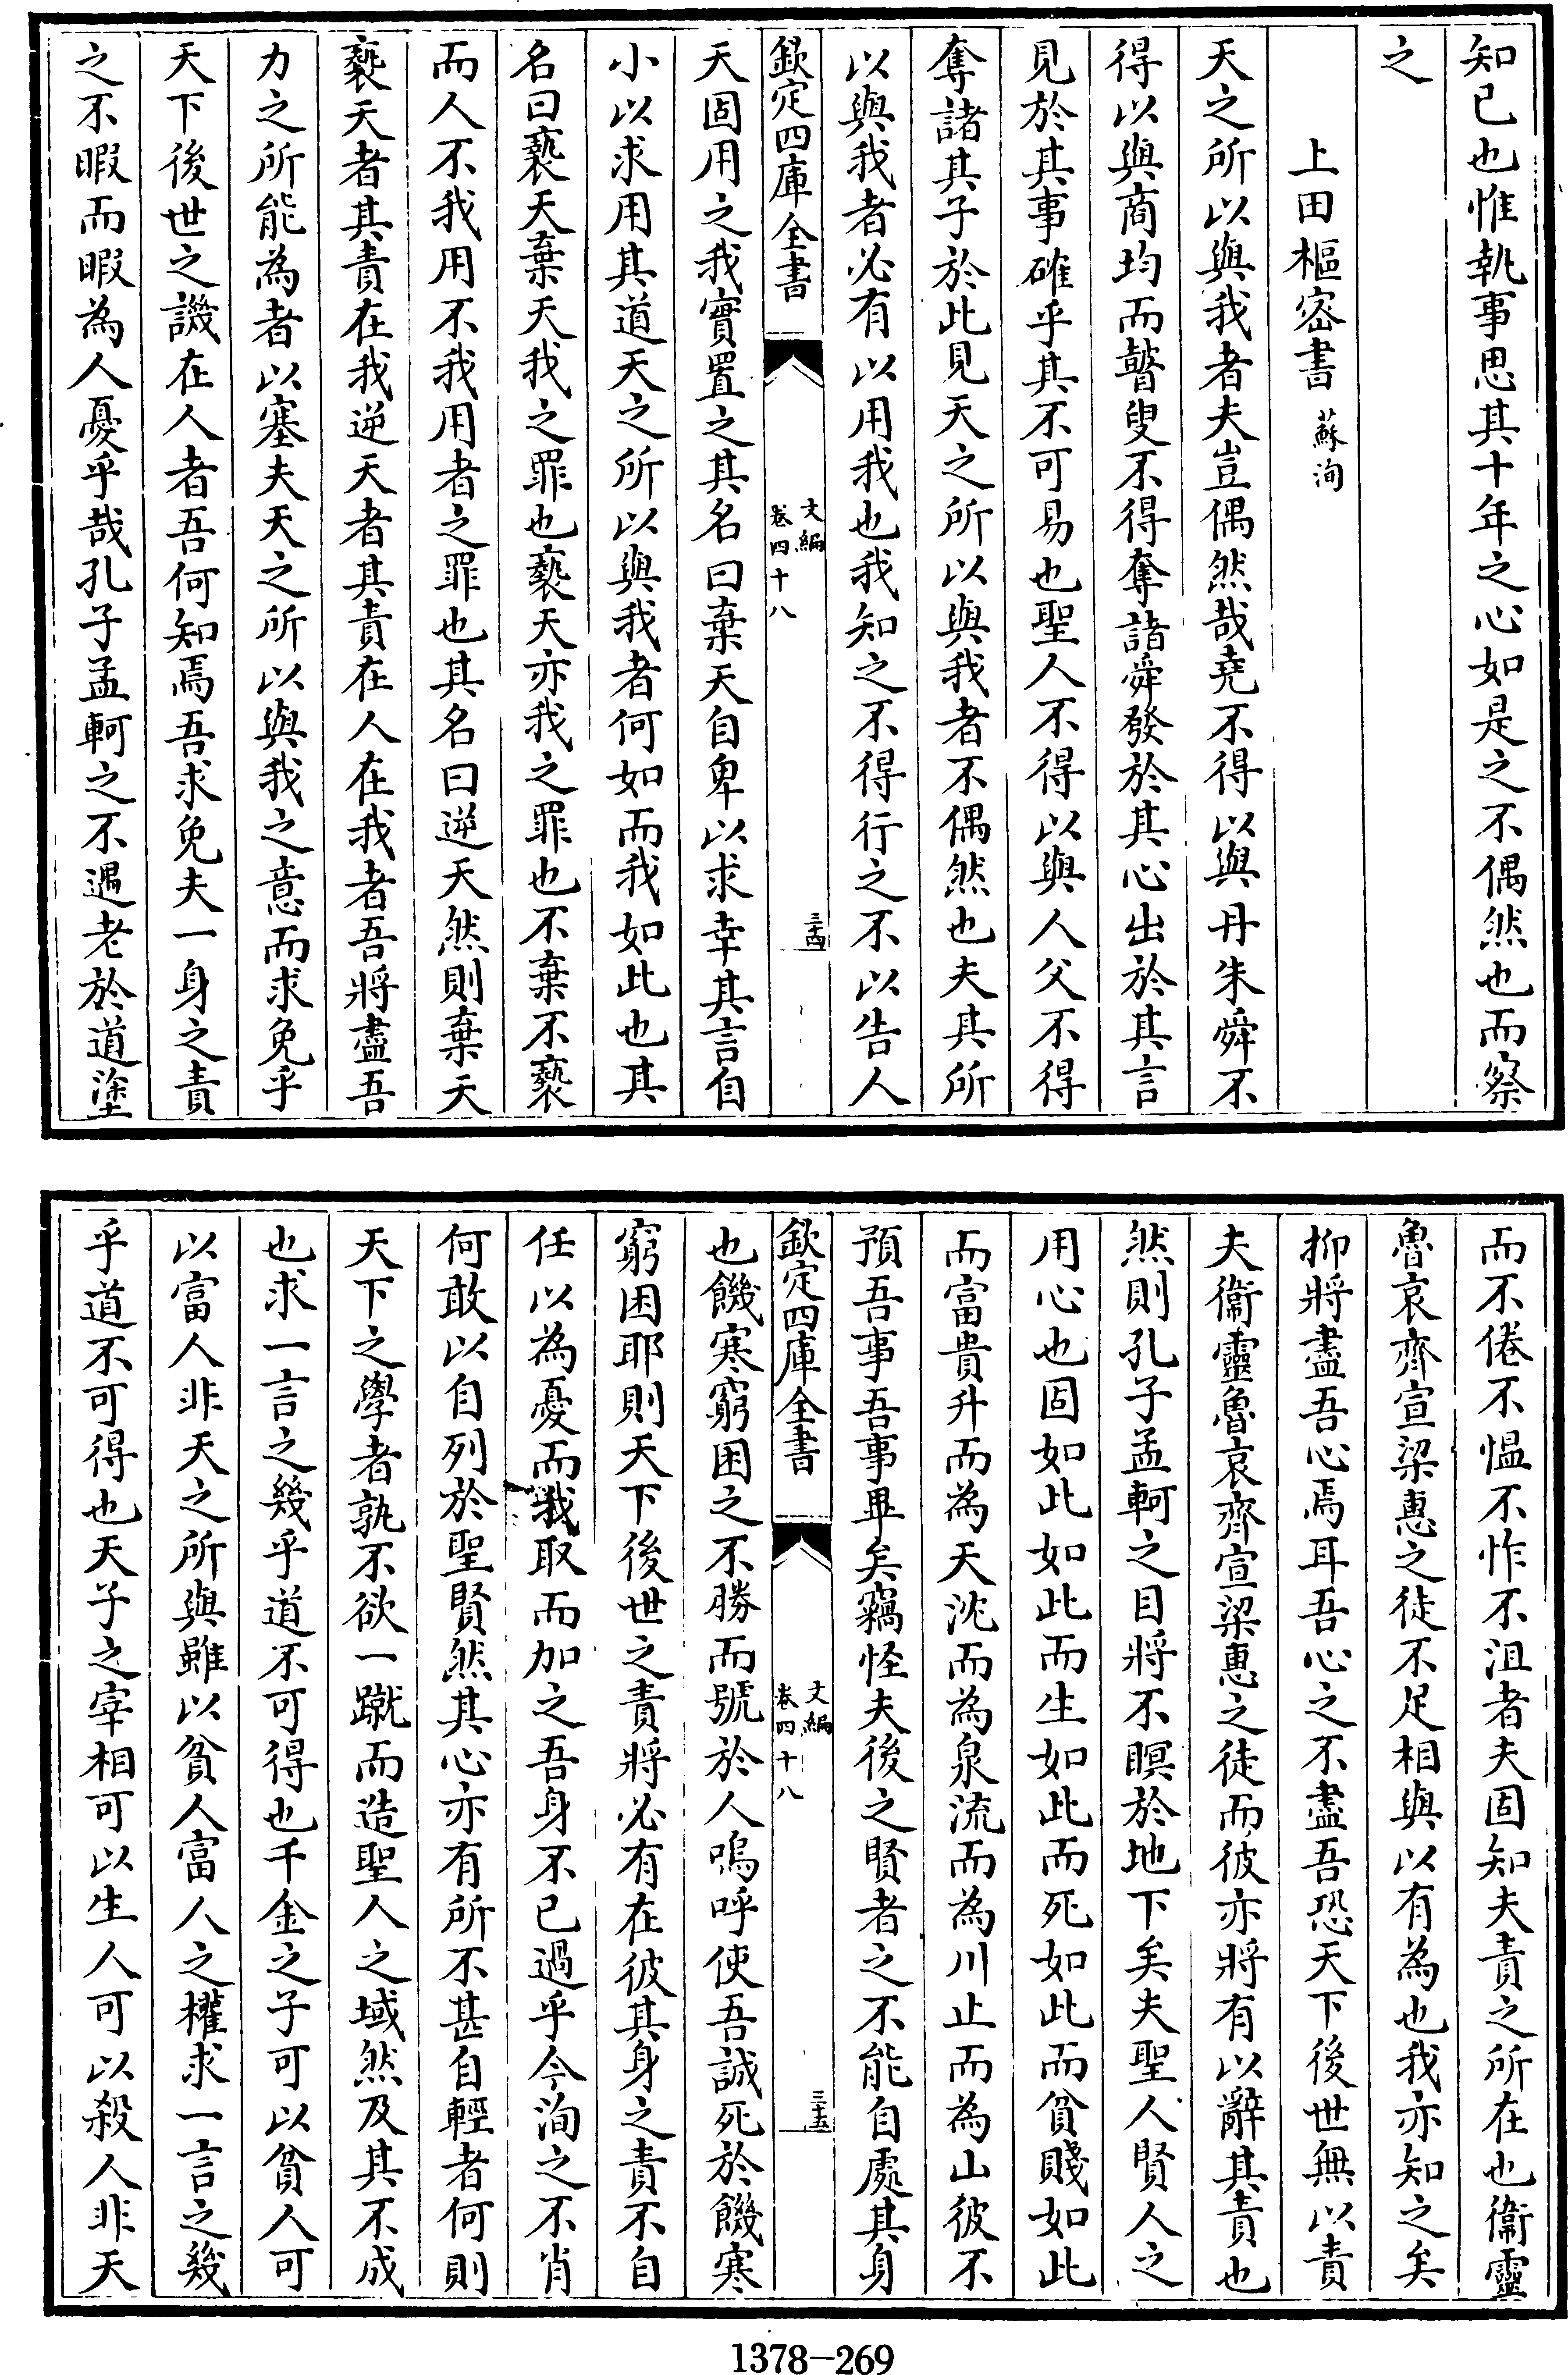 知已也惟執事思其十年之心如是之不偶然也而察
之
上田樞宻書蘇洵
天之所以與我者夫豈偶然哉堯不得以與丹朱舜不
得以與商均而瞽叟不得奪諸舜發於其心出於其言
見於其事確乎其不可易也聖人不得以與人父不得
奪諸其子於此見天之所以與我者不偶然也夫其所
以與我者必有以用我也我知之不得行之不以告人
欽定四庫全書
文編
卷四十八
三十四
天固用之我實置之其名曰棄天自卑以求幸其言自
小以求用其道天之所以與我者何如而我如此也其
名曰褻天棄天我之罪也褻天亦我之罪也不棄不褻
而人不我用不我用者之罪也其名曰逆天然則棄天
褻天者其責在我逆天者其責在人在我者吾將盡吾
力之所能為者以塞夫天之所以與我之意而求免乎
天下後世之譏在人者吾何知焉吾求免夫一身之責
之不暇而暇為人憂乎哉孔子孟軻之不遇老於道塗
而不倦不愠不怍不沮者夫固知夫責之所在也衞靈
魯哀齊宣梁惠之徒不足相與以有為也我亦知之矣
抑將盡吾心焉耳吾心之不盡吾恐天下後世無以責
夫衞靈魯哀齊宣梁惠之徒而彼亦將有以辭其責也
然則孔子孟軻之目將不瞑於地下矣夫聖人賢人之
用心也固如此如此而生如此而死如此而貧賤如此
而富貴升而為天沈而為泉流而為川止而為山彼不
預吾事吾事畢矣竊怪夫後之賢者之不能自處其身
欽定四庫全書
文編
卷四十八
三十五
也饑寒窮困之不勝而號於人嗚呼使吾誠死於饑寒
窮困耶則天下後世之責將必有在彼其身之責不自
任以為憂而我取而加之吾身不已過乎今洵之不肖
何敢以自列於聖賢然其心亦有所不甚自輕者何則
天下之學者孰不欲一蹴而造聖人之域然及其不成
也求一言之幾乎道不可得也千金之子可以貧人可
以富人非天之所與雖以貧人富人之權求一言之幾
乎道不可得也天子之宰相可以生人可以殺人非天
1378-269